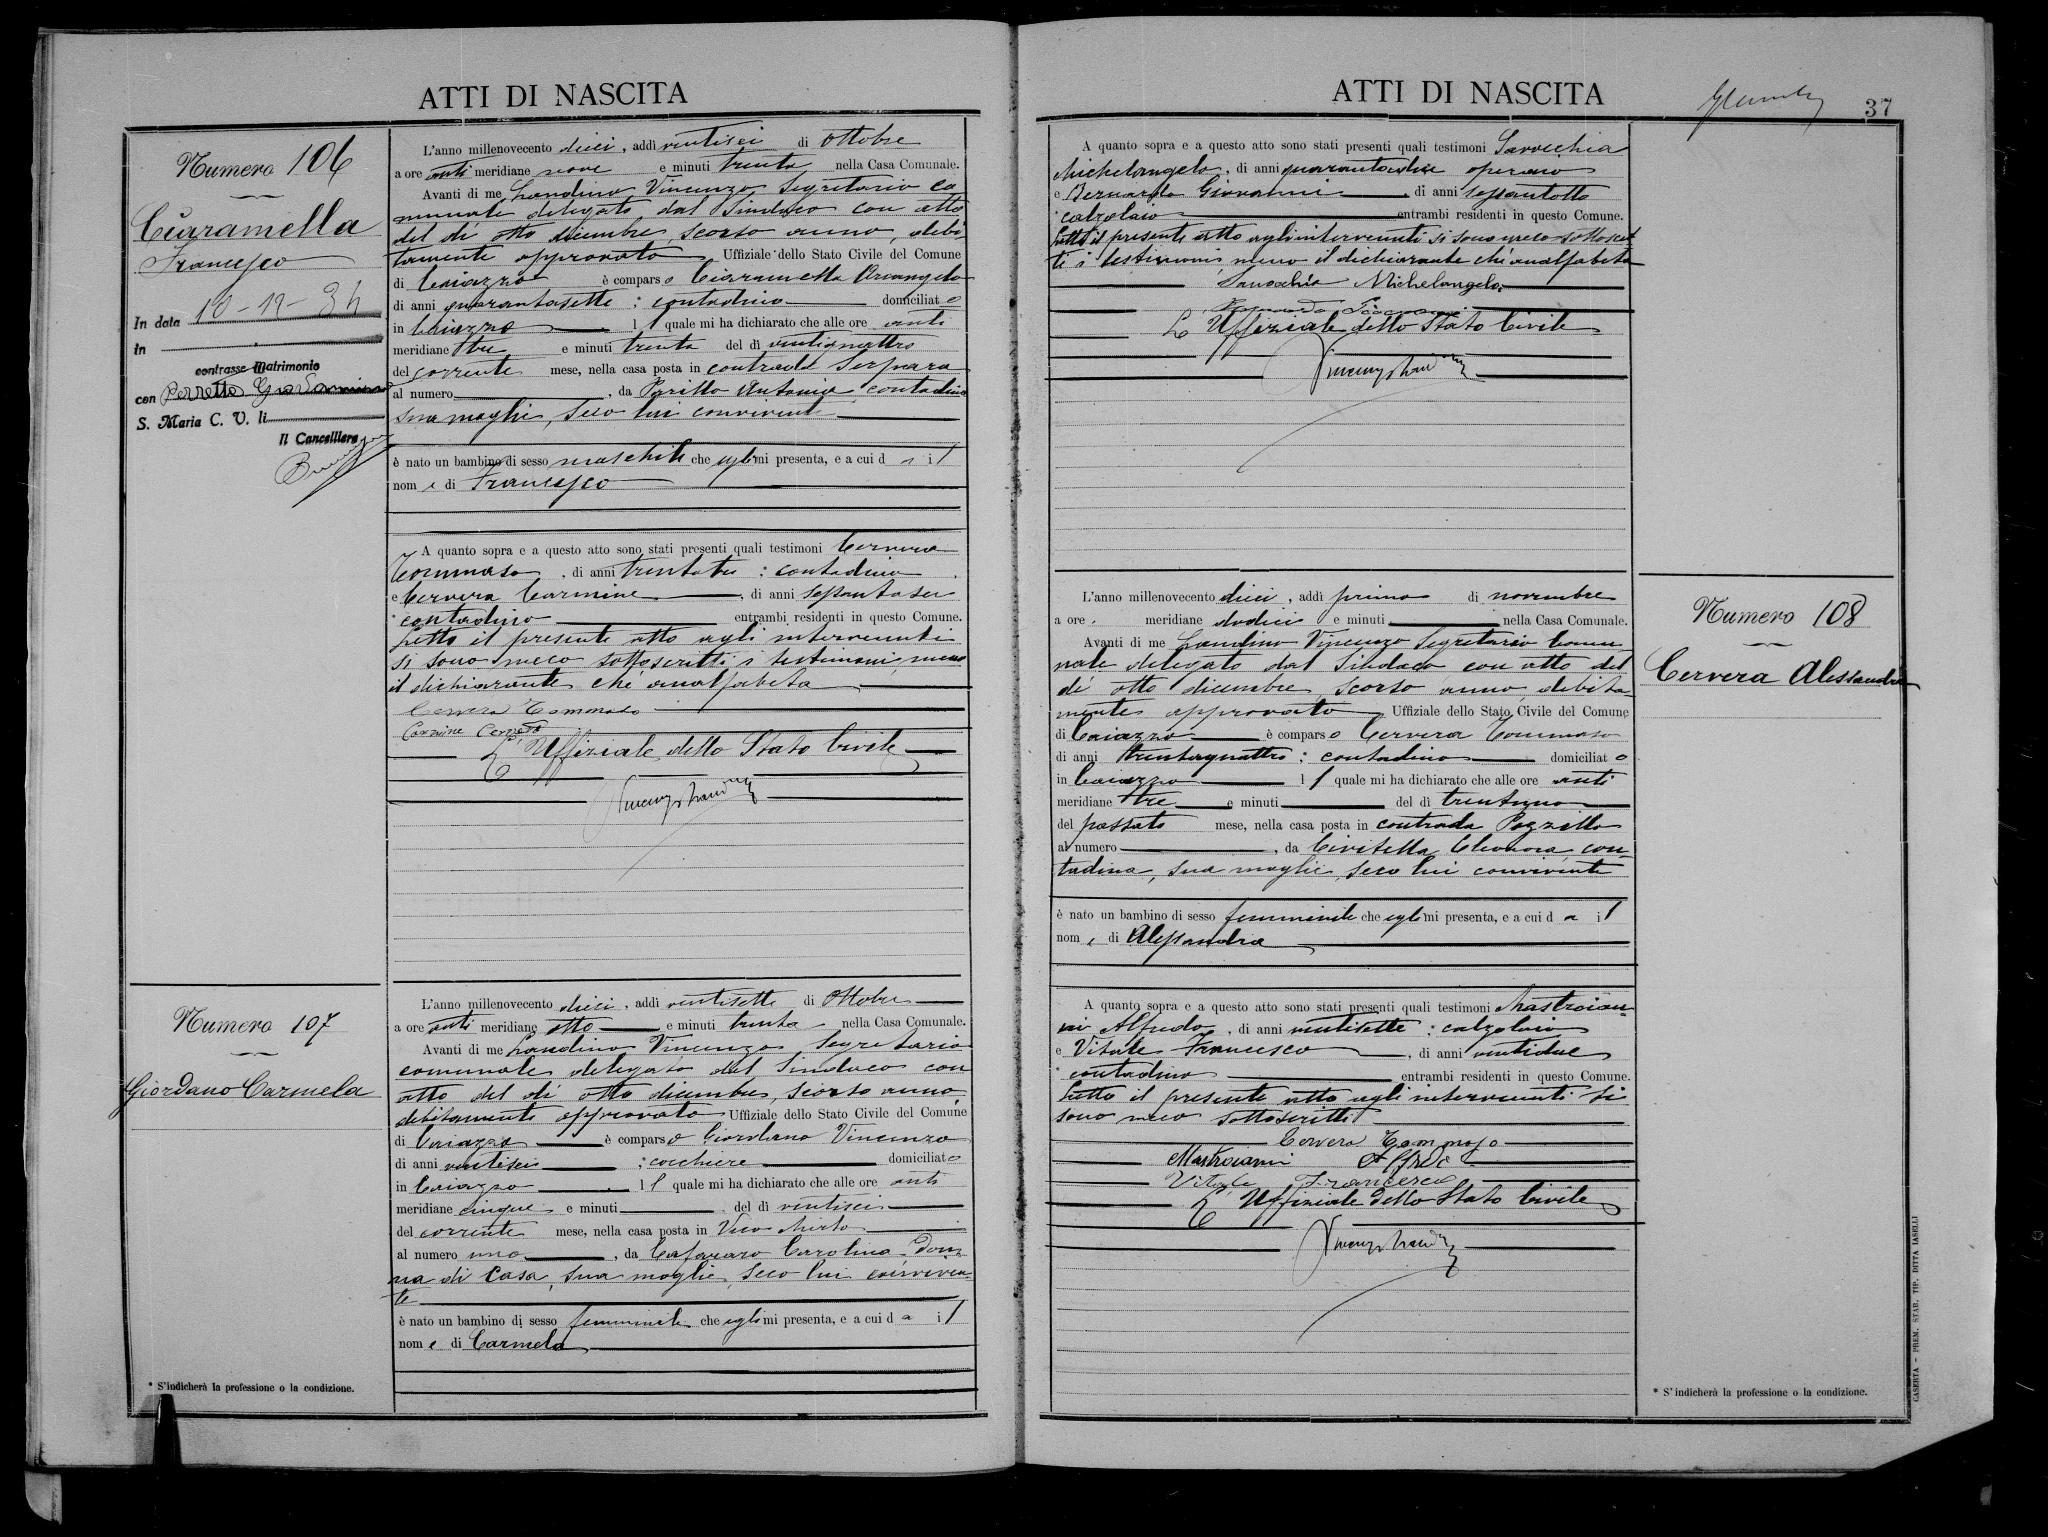 ATTI DI NASCITA
Numero 106
Ciaramella
Francesco
In data 10-12-34
In
contrasse Matrimonio
con Perretta
S. Maria C. V. li
Il Cancelliere
L'anno millenovecento dieci, addì ventisei di ottobre
a ore anti meridiane nove e minuti trenta nella Casa Comunale.
Avanti di me Landino Vincenzo Segretario co
munale delegato dal Sindaco con atto
del dì otto dicembre, scorso anno, debi
tamente approvato Uffiziale dello Stato Civile del Comune
di Caiazzo è comparso Ciaramella
di anni quarantasette; contadino domiciliato
in Caiazzo il quale mi ha dichiarato che alle ore anti
meridiane tre e minuti trenta del dì ventiquattro
del corrente mese, nella casa posta in contrada
al numero , da Perillo Antonia contadina
sua moglie, seco lui convivente
è nato un bambino di sesso maschile che egli mi presenta, e a cui dà il
nome di Francesco
A quanto sopra e a questo atto sono stati presenti quali testimoni Cervera
Tommaso, di anni trentatre; contadino
e Cervera Carmine, di anni sessantasei
contadino entrambi residenti in questo Comune.
Letto il presente atto agli intervenuti
si sono meco sottoscritti i testimoni, meno
il dichiarante chè analfabeta
Cervera Tommaso
Carmine Cervera
L'Uffiziale dello Stato Civile
Numero 107
Giordano Carmela
L'anno millenovecento dieci, addì ventisette di ottobre
a ore anti meridiane otto e minuti trenta nella Casa Comunale.
Avanti di me Landino Vincenzo Segretario
comunale delegato dal Sindaco con
atto del dì otto dicembre, scorso anno,
debitamente approvato Uffiziale dello Stato Civile del Comune
di Caiazzo è comparso Giordano Vincenzo
di anni ventisei; cocchiere domiciliato
in Caiazzo il quale mi ha dichiarato che alle ore anti
meridiane cinque e minuti del dì ventisei
del corrente mese, nella casa posta in Vico
al numero uno, da Cafararo Carolina don
na di casa, sua moglie, seco lui conviven
te
è nato un bambino di sesso femminile che egli mi presenta, e a cui dà il
nome di Carmela
* S'indicherà la professione o la condizione.
ATTI DI NASCITA
37
A quanto sopra e a questo atto sono stati presenti quali testimoni
Michelangelo, di anni operaio
e Bernardo Giovanni, di anni sessantotto
calzolaio entrambi residenti in questo Comune.
Letto il presente atto agli intervenuti si sono meco sottoscrit
ti i testimoni meno il dichiarante chè analfabeta
Michelangelo
L'Uffiziale dello Stato Civile
Numero 108
Cervera Alessandra
L'anno millenovecento dieci, addì primo di novembre
a ore meridiane dodici e minuti nella Casa Comunale.
Avanti di me Landino Vincenzo Segretario Comu
nale delegato dal Sindaco con atto del
dì otto dicembre, scorso anno, debita
mente approvato Uffiziale dello Stato Civile del Comune
di Caiazzo è comparso Cervera Tommaso
di anni trentaquattro; contadino domiciliato
in Caiazzo il quale mi ha dichiarato che alle ore anti
meridiane tre e minuti del dì trentuno
del passato mese, nella casa posta in contrada Pozzillo
al numero , da Civitella Eleonora, con
tadina, sua moglie, seco lui convivente
è nato un bambino di sesso femminile che egli mi presenta, e a cui dà il
nome di Alessandra
A quanto sopra e a questo atto sono stati presenti quali testimoni Mastroian
ni Alfredo, di anni ventisette; calzolaio
e Vitale Francesco, di anni ventidue
contadino entrambi residenti in questo Comune.
Letto il presente atto agli intervenuti si
sono meco sottoscritti
Cervera Tommaso
Mastroianni Alfredo
Vitale Francesco
L'Uffiziale dello Stato Civile
* S'indicherà la professione o la condizione.
CASERTA - PREM. STAB. TIP. DITTA IASELLI